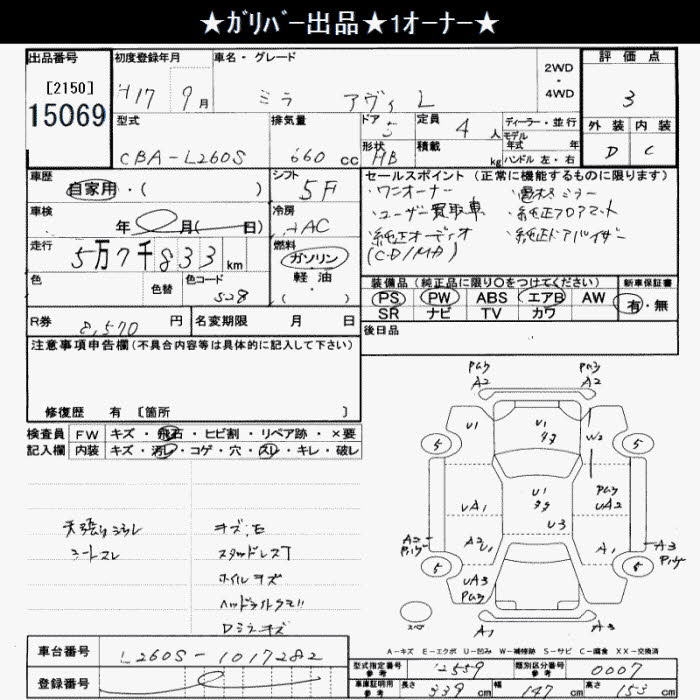 ★ガリバー出品★1オーナー★
出品番号
[2150]
15069
初度登録年月
H17 9月
車名・グレード
ミラ アヴィ L
2WD
・
4WD
評価点
3
外装 内装
D C
型式
CBA-L260S
排気量
660 cc
ドア
5
形状
HB
定員
4 人
積載
kg
ディーラー・並行
モデル
年式 年
ハンドル 左・右
車歴
自家用・( )
シフト
5F
車検
年 月( 日)
冷房
AC
走行
5万7千833km
燃料
ガソリン
軽油
( )
色
色替
色コード
S28
R券
8,570 円
名変期限 月 日
セールスポイント (正常に機能するものに限ります)
・ワンオーナー
・ユーザー買取車
・純正オーディオ
(CD/MD)
・電格ミラー
・純正フロアマット
・純正ドアバイザー
装備品 (純正品に限り○をつけてください)
PS PW ABS エアB AW
SR ナビ TV カワ
新車保証書
有・無
後日品
注意事項申告欄 (不具合内容等は具体的に記入して下さい)
修復歴 有 [箇所 ]
検査員
記入欄
FW キズ・飛石・ヒビ割・リペア跡・×要
内装 キズ・汚レ・コゲ・穴・スレ・キレ・破レ
シートスレ
スタッドレスT
ホイルキズ
ヘッドライトクモリ
Dミラーキズ
A2
A2
U1
U1
W2
5
5
U1
UA1
UA2
U3
A2
A2
U1
A1
A3
5
5
UA3
スペア
A1
A3
A-キズ E-エクボ U-凹み W-補修跡 S-サビ C-腐食 XX-交換済
車台番号
L260S-1017282
登録番号
型式指定番号
参考
12559
類別区分番号
参考
0007
車庫証明用
参考
長さ 339 cm
幅 147 cm
高さ 153 cm